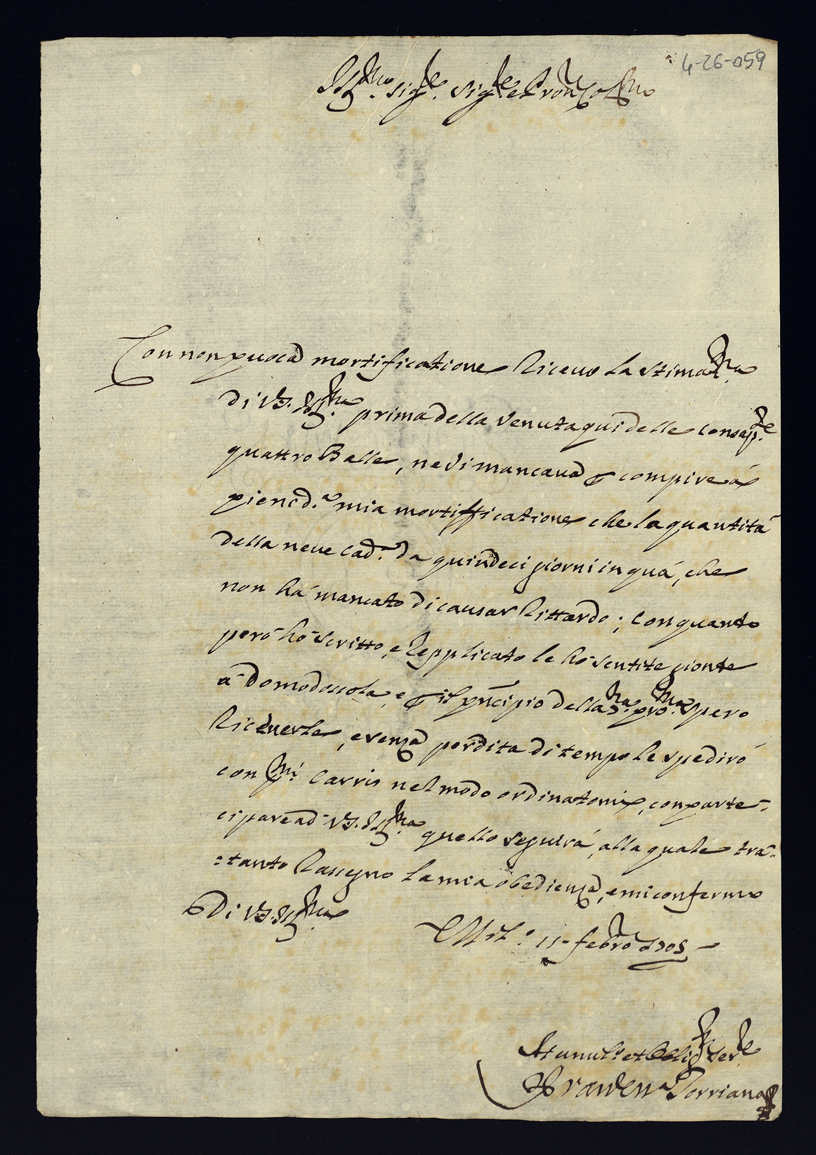 4-26-059
Ill.mo Sig.re Sig.re e Pron Col.mo
Con non puoca mortificatione Riceuo la stimat.ma
di V.S. Ill.ma prima della venuta qui delle consap.te
quattro Balle, ne vi mancaua p compire a
piena d.a mia mortifficatione che la quantità
della neue cad.a da quindeci giorni in quà, che
non hà mancato di causar Rittardo; con quanto
però hò scritto, e Repplicato le hò sentite gionte
à Domodossola, e p il prīcipio della pro.ma spero
Riceuerle, e senza perdita di tempo le spedirò
con Carris nel modo ordinatomi, con parte-
cipare ad V.S. Ill.ma quello seguirà, alla quale tra-
:tanto Rassegno la mia obedienza, e mi confermo
Di V.S. Ill.ma
11 febro 1705
et Oblig.mo Ser.re
Torriano